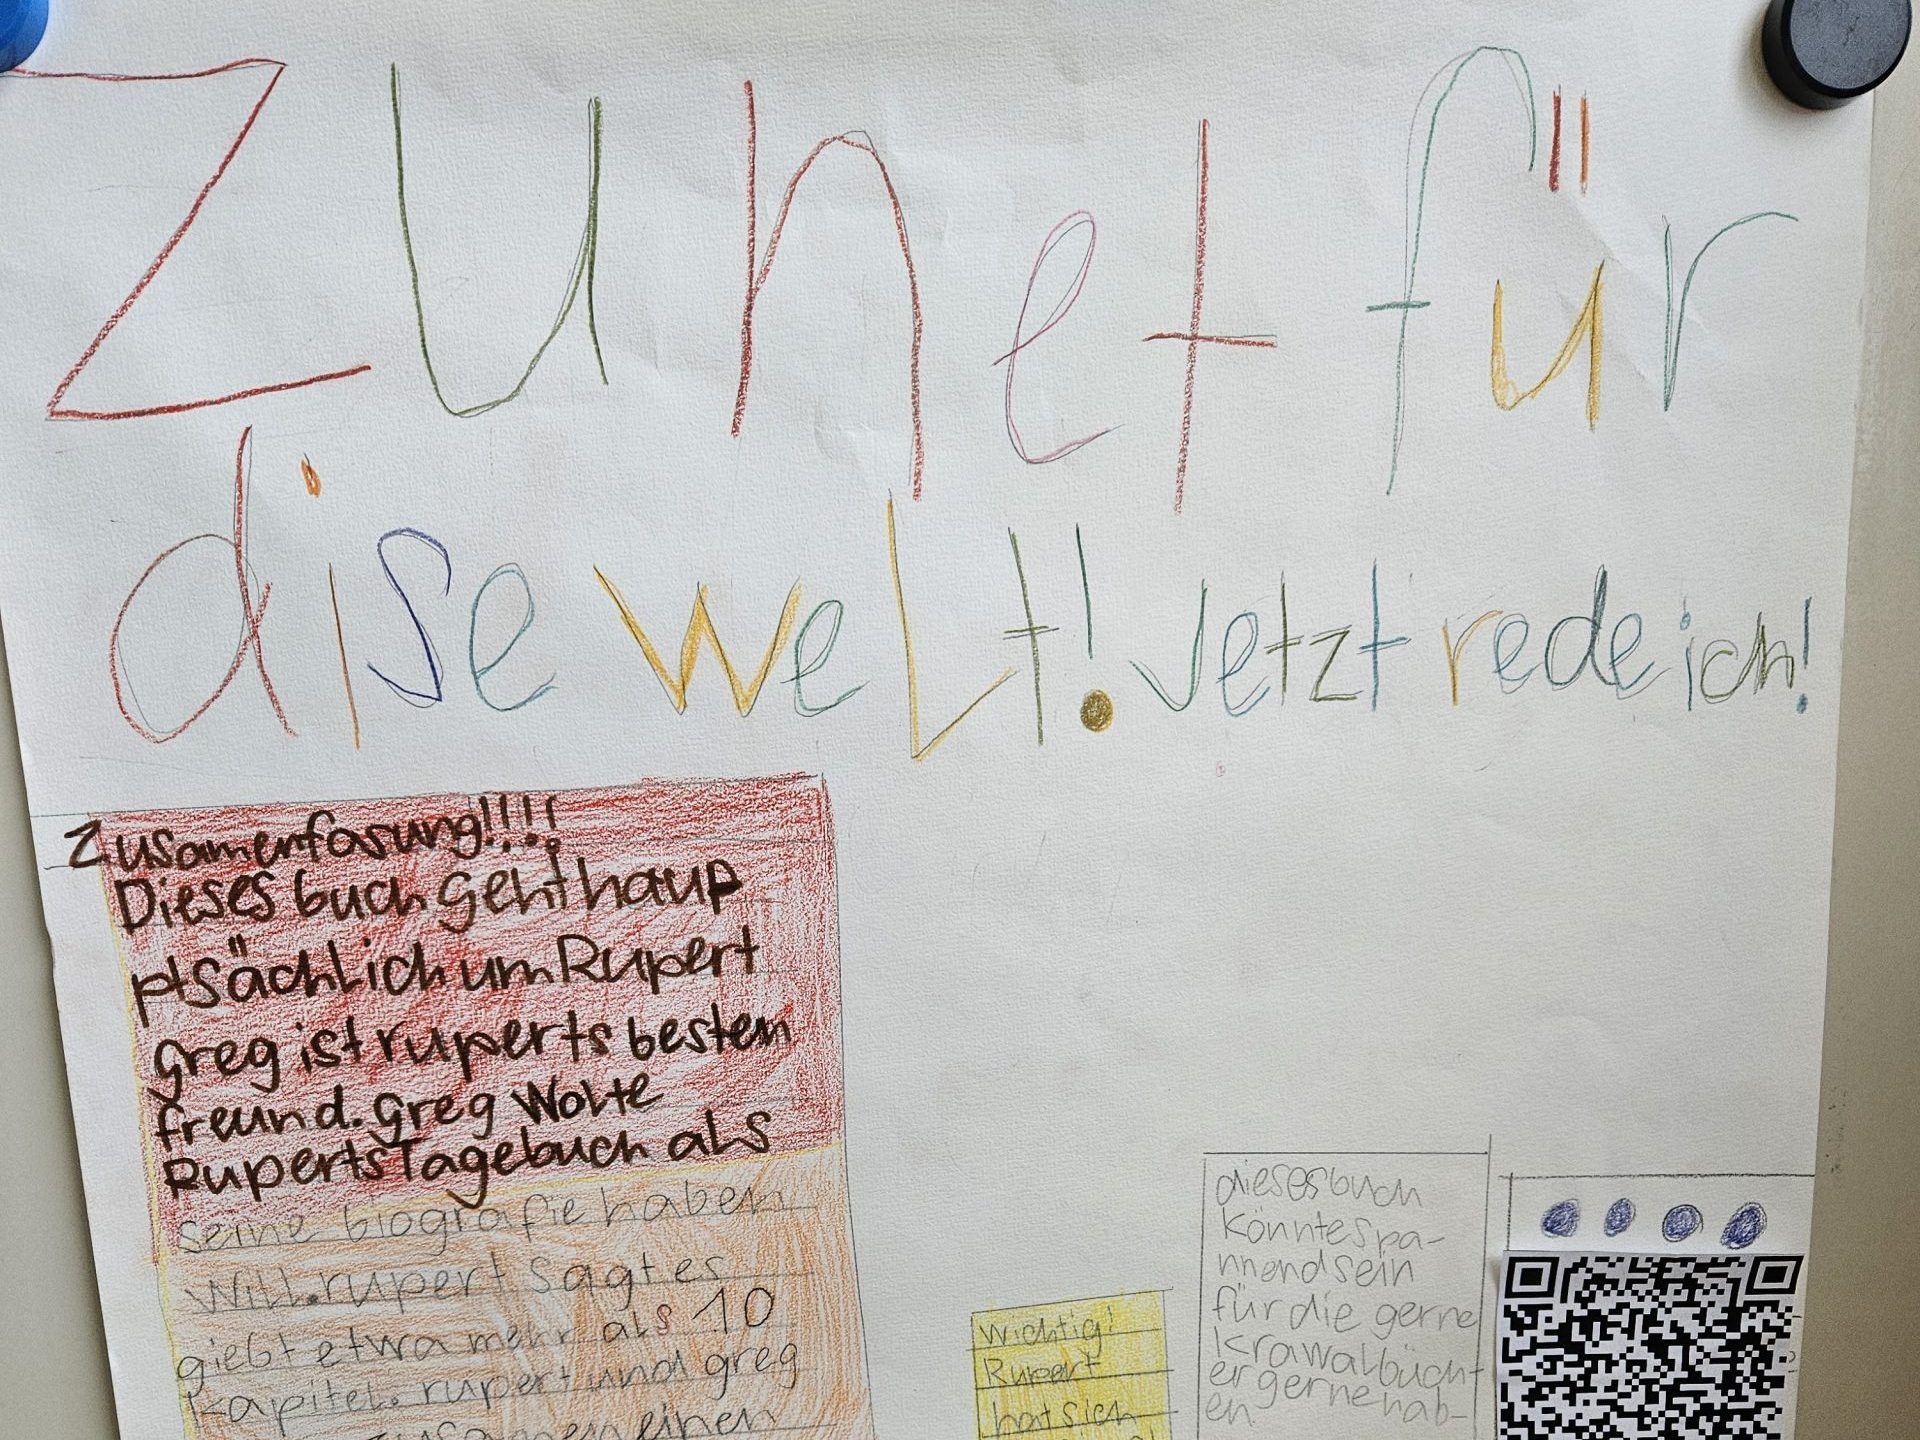 Zu net für
dise welt! Jetzt rede ich!
Zusamenfasung!!!!
Dieses buch geht haup
ptsächlich um Rupert
greg ist ruperts besten
freund. greg wolte
Ruperts Tagebuch als
seine biografie haben
will. rupert sagt es
giebt etwa mehr als 10
kapitel. rupert und greg
zusamen einen
wichtig!
Rupert
hat sich
dieses buch
könnte spa-
nnend sein
für die gerne
krawalbüch-
er gerne hab-
en